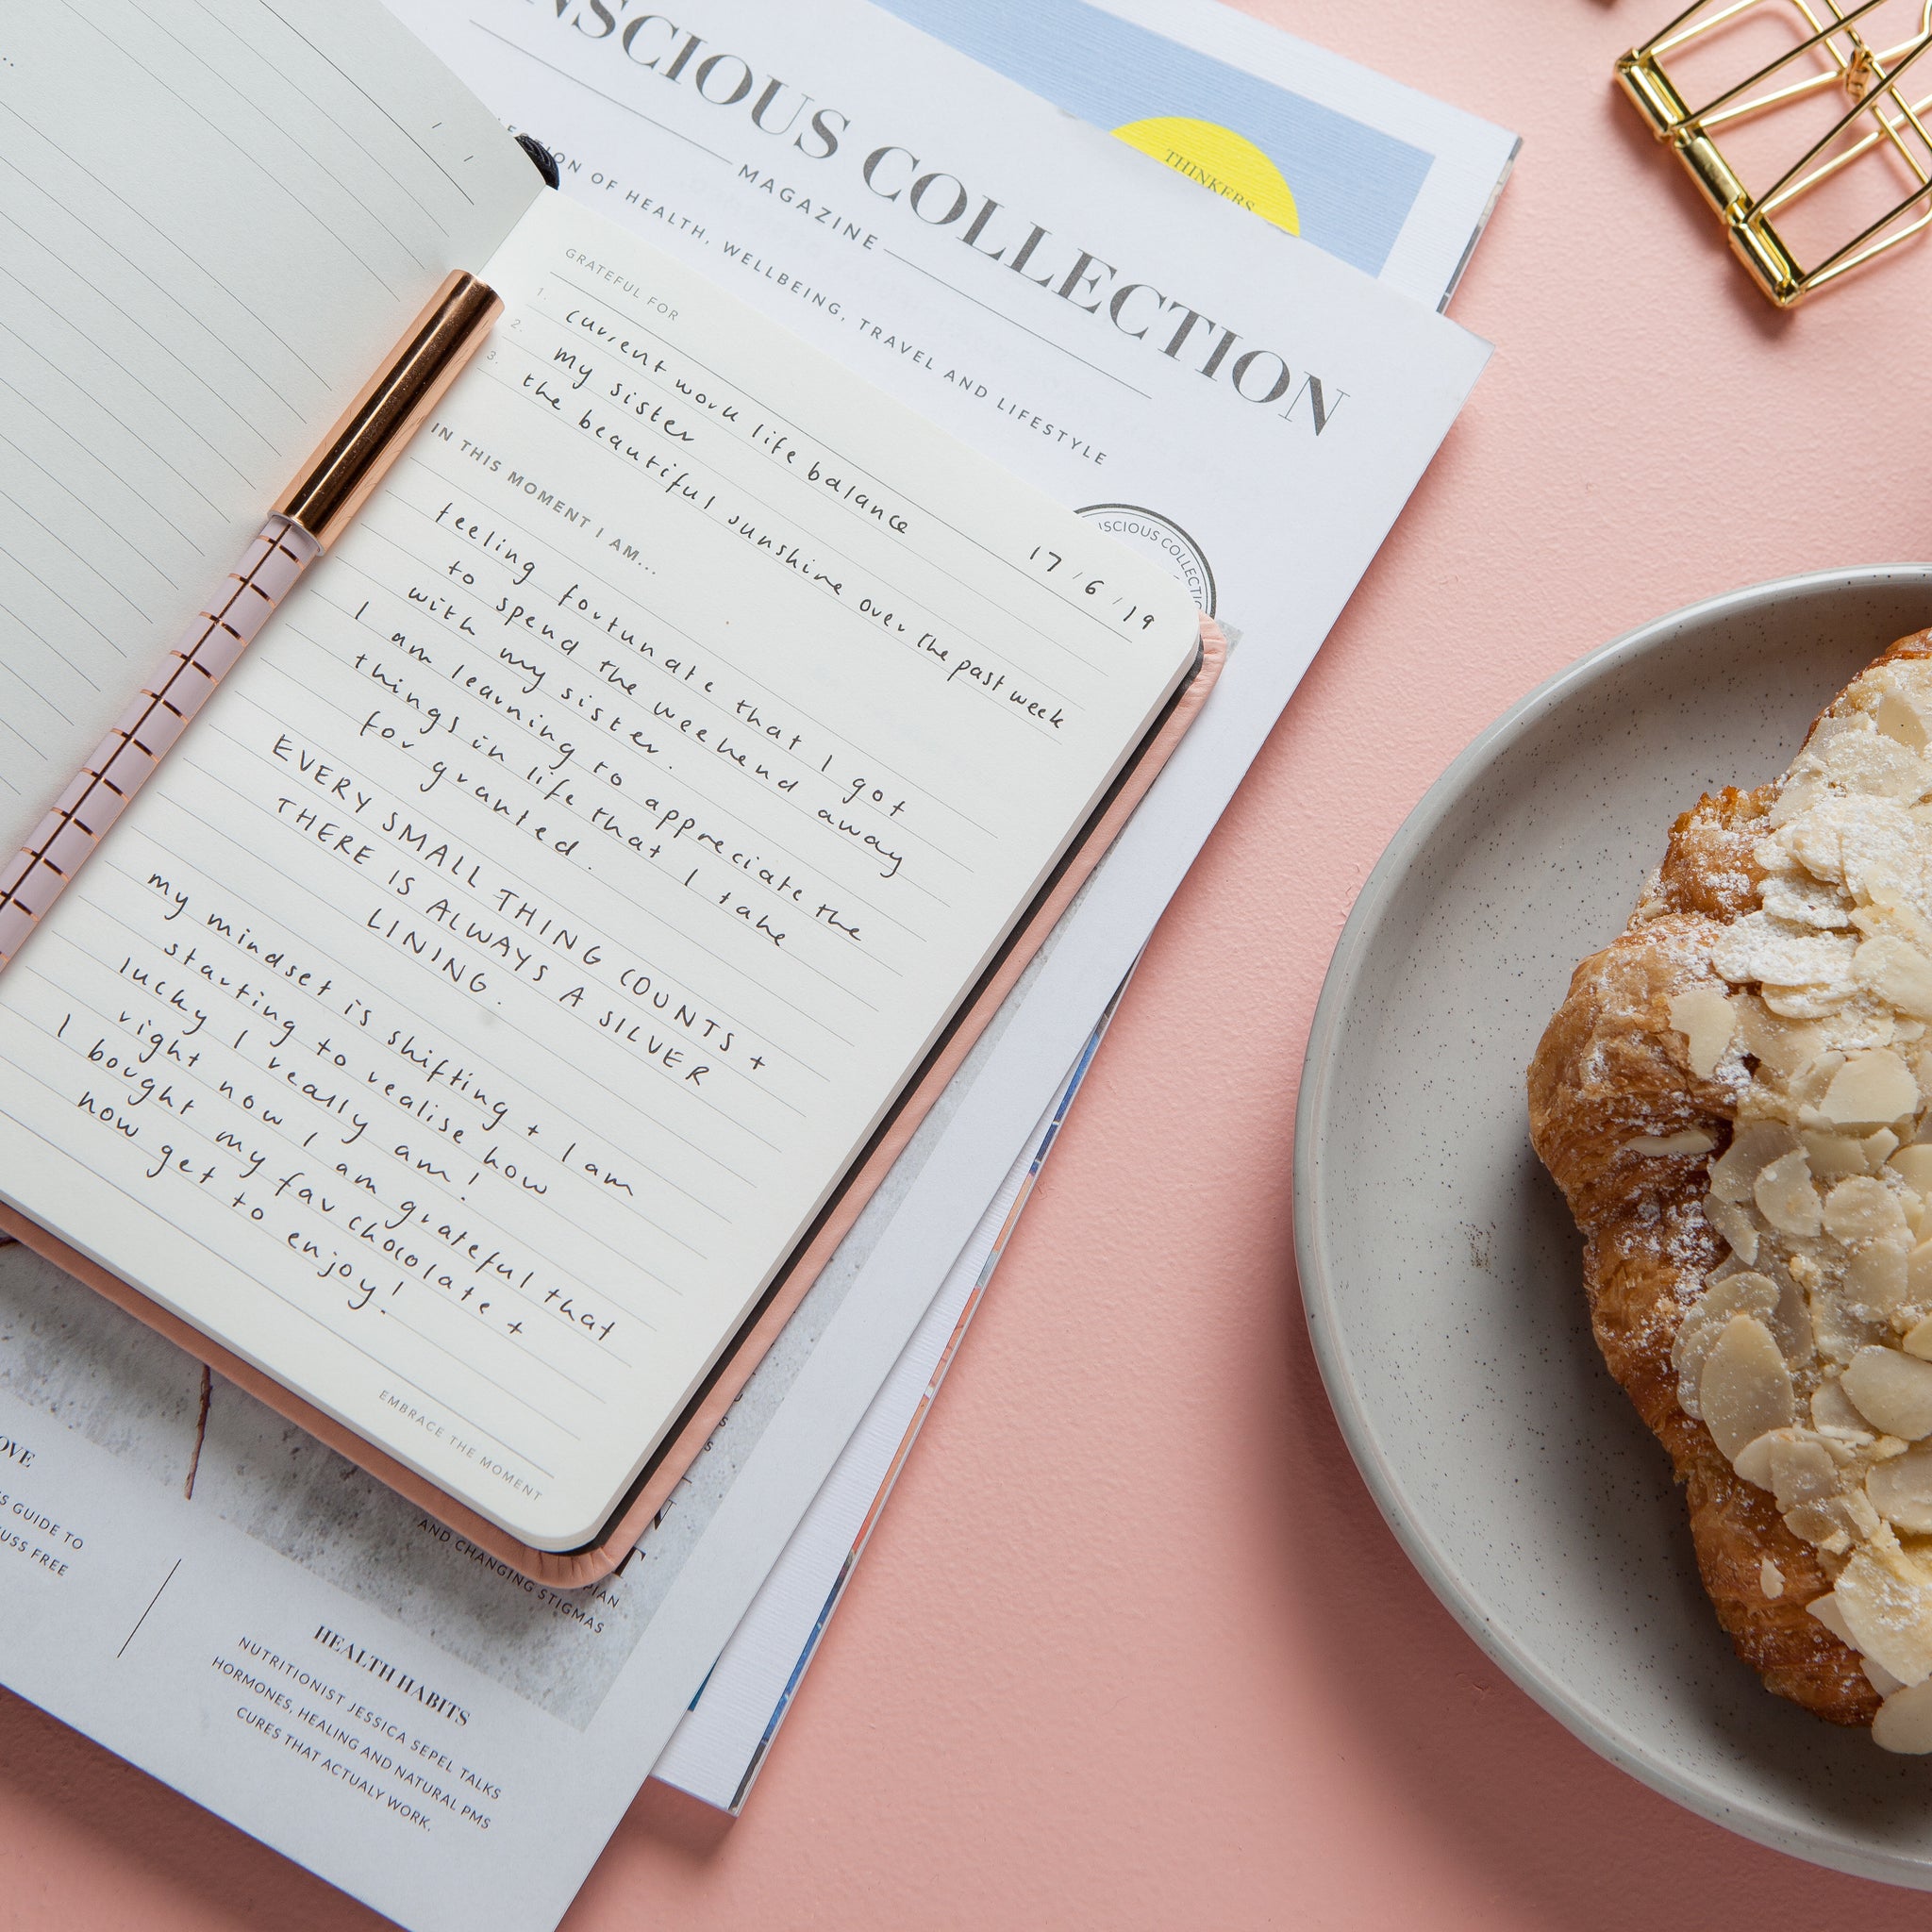 NSCIOUS COLLECTION
MAGAZINE
ION OF HEALTH, WELLBEING, TRAVEL AND LIFESTYLE
THINKERS
SCIOUS COLLECTIO
GRATEFUL FOR
17/6/19
1. current work life balance
2. my sister
3. the beautiful sunshine over the past week
IN THIS MOMENT I AM...
feeling fortunate that I got
to spend the weekend away
with my sister.
I am learning to appreciate the
things in life that I take
for granted.
EVERY SMALL THING COUNTS +
THERE IS ALWAYS A SILVER
LINING.
my mindset is shifting + I am
starting to realise how
lucky I really am!
right now I am grateful that
I bought my fav chocolate +
now get to enjoy!
EMBRACE THE MOMENT
OVE
S GUIDE TO
USS FREE
AND CHANGING STIGMAS
HEALTH HABITS
NUTRITIONIST JESSICA SEPEL TALKS
HORMONES, HEALING AND NATURAL PMS
CURES THAT ACTUALY WORK.